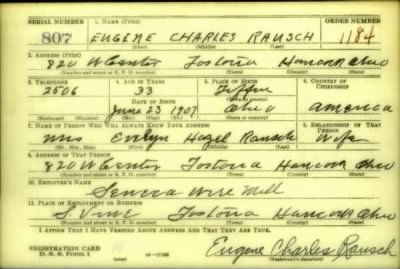 SERIAL NUMBER 1. NAME (Print) ORDER NUMBER
807 EUGENE CHARLES RAUSCH 1184
(First) (Middle) (Last)
2. ADDRESS (Print)
820 W Center Fostoria Hancock Ohio
(Number and street or R. F. D. number) (Town) (County) (State)
3. TELEPHONE 4. AGE IN YEARS 5. PLACE OF BIRTH 6. COUNTRY OF CITIZENSHIP
2506 33 Tiffin
DATE OF BIRTH
June 23 1907 Ohio America
(Mo.) (Day) (Yr.) (State or country)
7. NAME OF PERSON WHO WILL ALWAYS KNOW YOUR ADDRESS 8. RELATIONSHIP OF THAT PERSON
Mrs Evelyn Hazel Rausch Wife
(Mr., Mrs., Miss) (First) (Middle) (Last)
9. ADDRESS OF THAT PERSON
820 W Center Fostoria Hancock Ohio
(Number and street or R. F. D. number) (Town) (County) (State)
10. EMPLOYER'S NAME
Seneca Wire Mill
11. PLACE OF EMPLOYMENT OR BUSINESS
S. Vine Fostoria Hancock Ohio
(Number and street or R. F. D. number) (Town) (County) (State)
I AFFIRM THAT I HAVE VERIFIED ABOVE ANSWERS AND THAT THEY ARE TRUE.
REGISTRATION CARD
D. S. S. Form 1 Eugene Charles Rausch
(Registrant's signature)